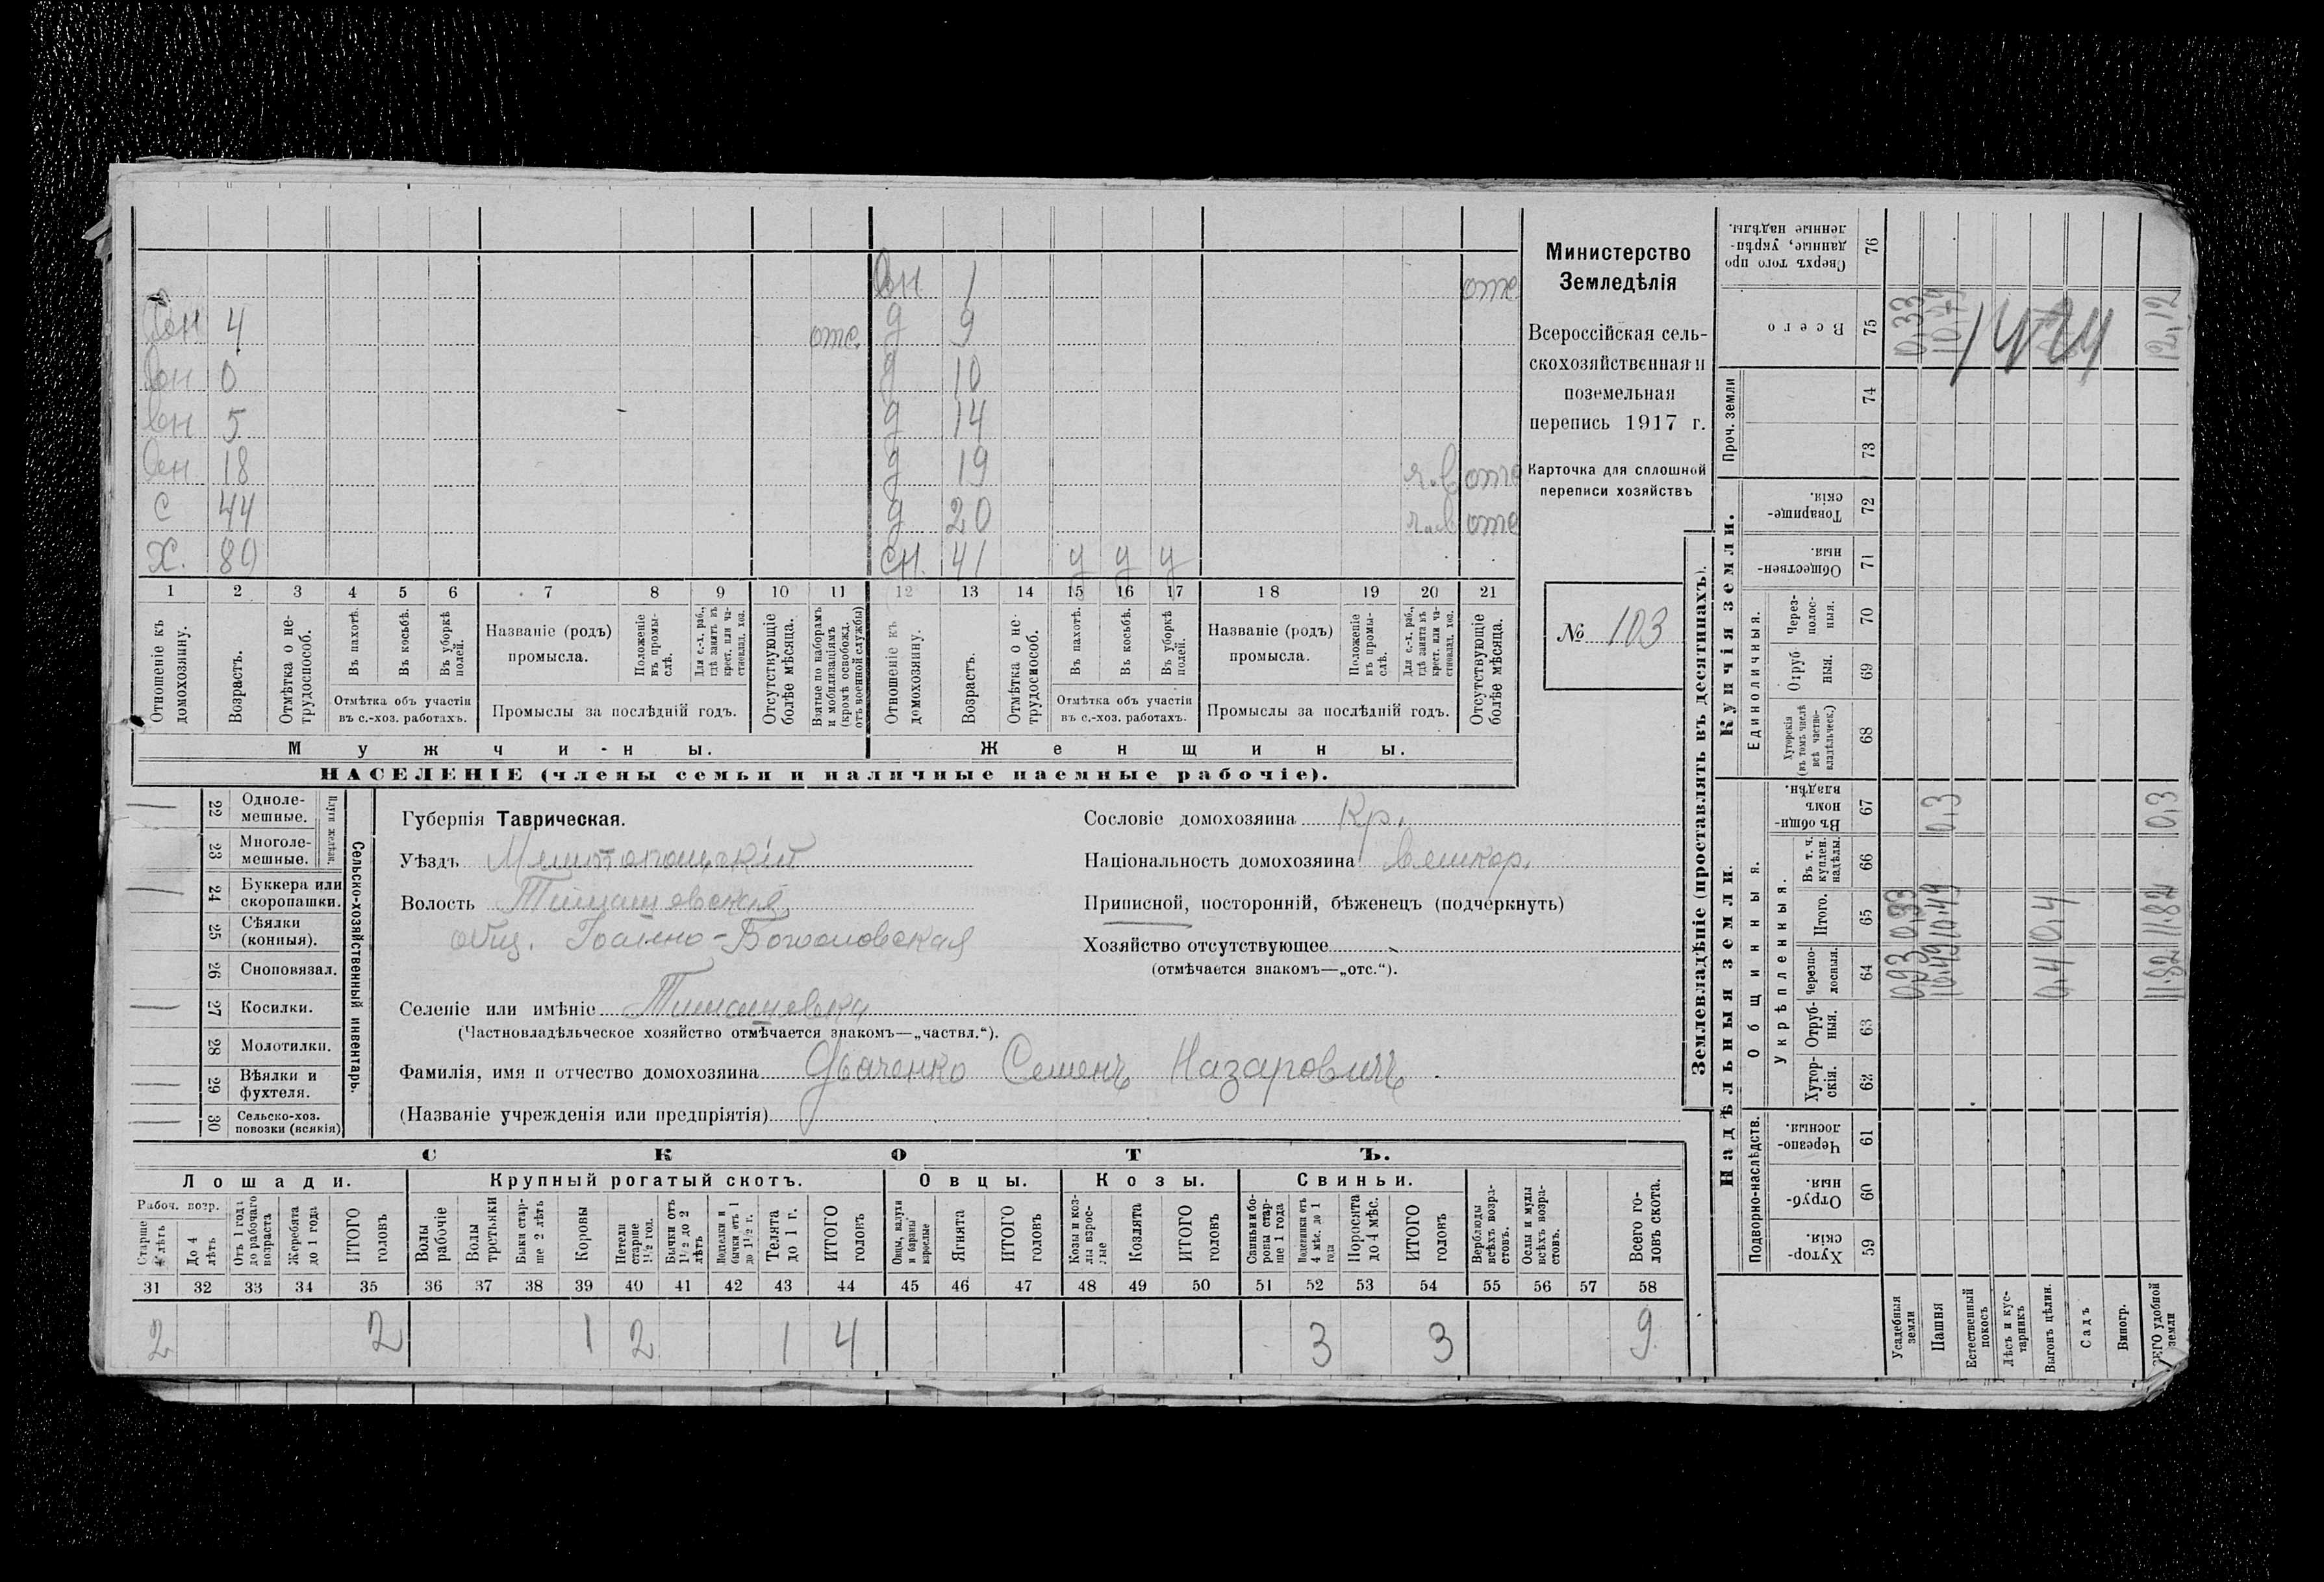 Министерство
Земледѣлія
Всероссійская сель-
скохозяйственная и
поземельная
перепись 1917 г.
Карточка для сплошной
переписи хозяйствъ
№ 103
1 отс.
4 отс. д 9
0 д 10
5 д 14
18 д 19 отс
С 44 д 20 отс
Х. 80 сн. 41 у у у
1 2 3 4 5 6 7 8 9 10 11 12 13 14 15 16 17 18 19 20 21
Отношеніе къ домохозяину.
Возрастъ.
Отмѣтка о не-трудоспособ.
Въ пахотѣ.
Въ косьбѣ.
Въ уборкѣ полей.
Отмѣтка объ участіи
въ с.-хоз. работахъ.
Названіе (родъ)
промысла.
Положеніе въ промы-слѣ.
Для с.-х. раб., гдѣ занятъ въ крест. или ча-стновлад. хоз.
Промыслы за послѣдній годъ.
Отсутствующіе болѣе мѣсяца.
Взятые по наборамъ и мобилизаціямъ (кромѣ освобожд. отъ военной службы)
Отношеніе къ домохозяину.
Возрастъ.
Отмѣтка о не-трудоспособ.
Въ пахотѣ.
Въ косьбѣ.
Въ уборкѣ полей.
Отмѣтка объ участіи
въ с.-хоз. работахъ.
Названіе (родъ)
промысла.
Положеніе въ промы-слѣ.
Для с.-х. раб., гдѣ занята въ крест. или ча-стновлад. хоз.
Промыслы за послѣдній годъ.
Отсутствующіе болѣе мѣсяца.
Мужчины.
Женщины.
НАСЕЛЕНІЕ (члены семьи и наличные наемные рабочіе).
Сельско-хозяйственный инвентарь.
Плуги желѣзн.
22 Одноле-мешные.
23 Многоле-мешные.
24 Буккера или скоропашки.
25 Сѣялки (конныя).
26 Сноповязал.
27 Косилки.
28 Молотилки.
29 Вѣялки и фухтеля.
30 Сельско-хоз. повозки (всякія)
Губернія Таврическая.
Уѣздъ Мелитопольскій
Волость Тимашевская
общ. Іоанно-Богословская
Селеніе или имѣніе Тимашевка
(Частновладѣльческое хозяйство отмѣчается знакомъ—„частвл.“).
Фамилія, имя и отчество домохозяина Дьяченко Семенъ Назаровичъ
(Названіе учрежденія или предпріятія)
Сословіе домохозяина Кр.
Національность домохозяина великор.
Приписной, посторонній, бѣженецъ (подчеркнуть)
Хозяйство отсутствующее
(отмѣчается знакомъ—„отс.“).
СКОТЪ.
Лошади. Крупный рогатый скотъ. Овцы. Козы. Свиньи.
Рабоч. возр.
Старше 4 лѣтъ
До 4 лѣтъ
Отъ 1 года до рабочаго возраста
Жеребята до 1 года
ИТОГО головъ
Волы рабочіе
Волы третьяки
Быки стар-ше 2 лѣтъ
Коровы
Нетели старше 1½ год.
Бычки отъ 1½ до 2 лѣтъ
Подтелки и бычки отъ 1 до 1½ г.
Телята до 1 г.
ИТОГО головъ
Овцы, валухи и бараны взрослые
Ягнята
ИТОГО головъ
Козы и коз-лы взрос-лые
Козлята
ИТОГО головъ
Свиньи и бо-ровы стар-ше 1 года
Подсвинки отъ 4 мѣс. до 1 года
Поросята до 4 мѣс.
ИТОГО головъ
Верблюды всѣхъ возра-стовъ.
Ослы и мулы всѣхъ возра-стовъ.
Всего го-ловъ скота.
31 32 33 34 35 36 37 38 39 40 41 42 43 44 45 46 47 48 49 50 51 52 53 54 55 56 57 58
2 2 1 2 1 4 3 3 9
Землевладѣніе (проставлять въ десятинахъ).
Надѣльныя земли.
Купчія земли.
Проч. земли
Подворно-наслѣдств.
Общинныя.
Укрѣпленныя.
Единоличныя.
59 Хутор-скія.
60 Отруб-ныя.
61 Черезпо-лосныя.
62 Хутор-скія.
63 Отруб-ныя.
64 Черезпо-лосныя.
65 Итого.
66 Въ т. ч. куплен. надѣлы
67 Въ общи-номъ владѣн.
68 Хуторскія (въ томъ числѣ всѣ частно-владѣльческ.)
69 Отруб ныя.
70 Через-полос-ныя.
71 Обществен-ныя.
72 Товарище-скія.
73
74
75 Всего
76 Сверхъ того про данные, укрѣп-ленные надѣлы.
Усадебныя земли 0,93 0,93 0,33
Пашня 10,49 10,49 0,3 10,79
Естественный покосъ
Лѣсъ и кус-тарникъ
Выгонъ цѣлин. 0,4 0,4
Садъ
Виногр.
ВСЕГО удобной земли 11,82 11,82 0,3 12,12